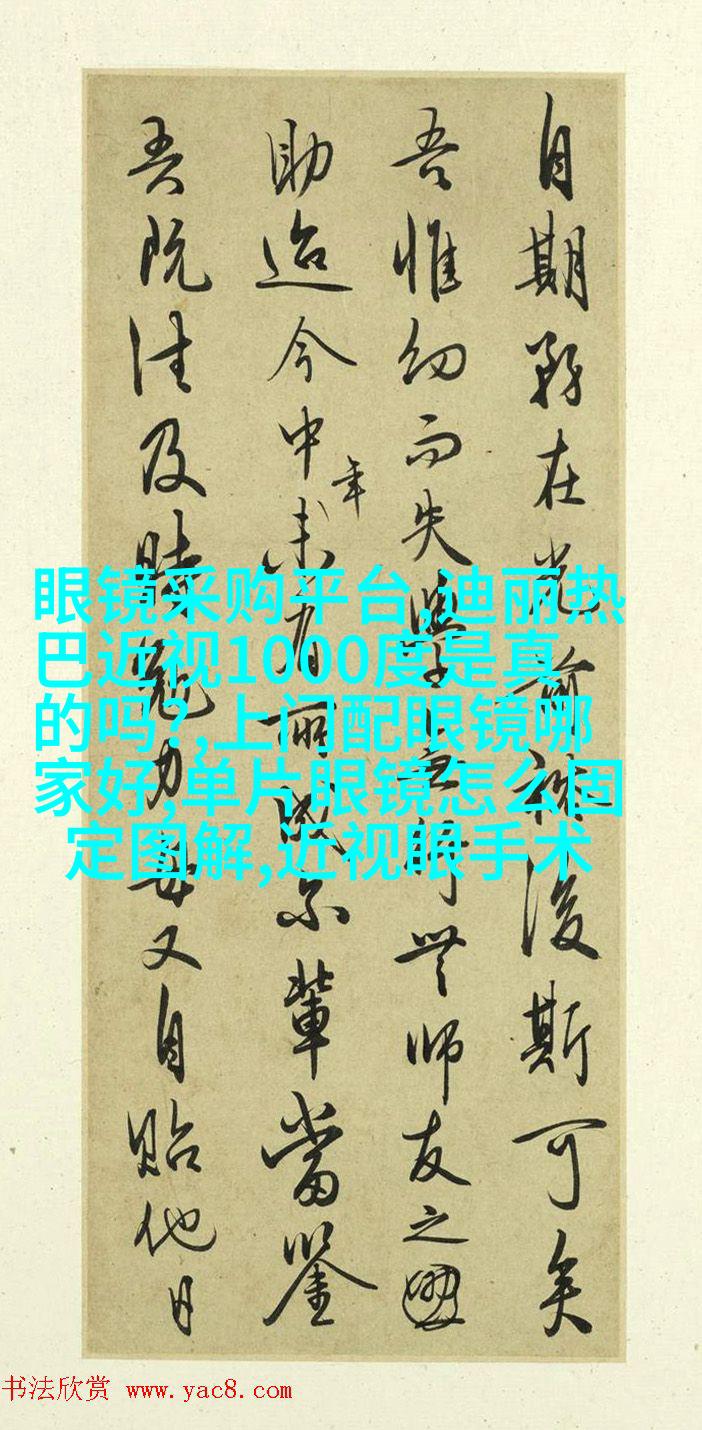 自期須在光前裕後斯可矣
吾惟幼而失學無行無師友之
助迨今中年未有所成尔輩當鑒
吾既往及時勉力毋又自貽他日
眼镜采购平台,迪丽热
巴近视1000度是真
的吗?,上门配眼镜哪
家好,单片眼镜怎么固
定图解,近视眼手术
书法欣赏 www.yac8.com